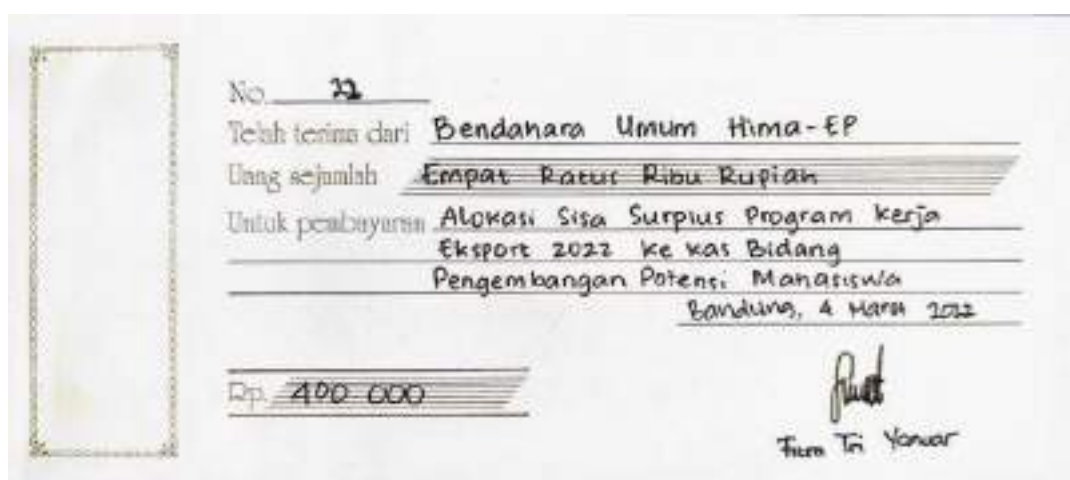 No. 22
Telah terima dari Bendahara Umum Hima-EP
Uang sejumlah Empat Ratus Ribu Rupiah
Untuk pembayaran Alokasi Sisa Surplus Program Kerja
Eksport 2022 ke kas Bidang
Pengembangan Potensi Mahasiswa
Bandung, 4 Maret 2022
Rp. 400.000
Tri Yanuar